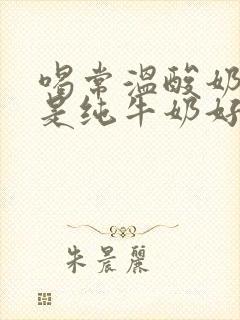 喝常温酸奶
是纯牛奶好
朱晨丽